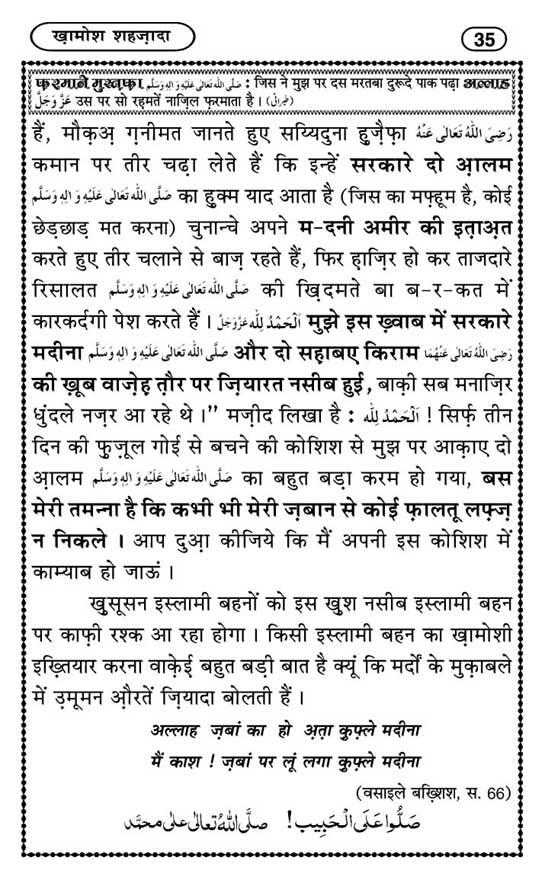 ख़ामोश शहज़ादा
35
फ़रमाने मुस्त़फ़ा صَلَّی اللہُ تَعَالٰی عَلَیْہِ وَاٰلِہٖ وَسَلَّم : जिस ने मुझ पर दस मरतबा दुरूदे पाक पढ़ा अल्लाह
عَزَّوَجَلَّ उस पर सो रहमतें नाज़िल फ़रमाता है। (طبرانی)
हैं, मौक़अ़ ग़नीमत जानते हुए सय्यिदुना हुज़ैफ़ा رَضِیَ اللہُ تَعَالٰی عَنْہُ
कमान पर तीर चढ़ा लेते हैं कि इन्हें सरकारे दो आ़लम
صَلَّی اللہُ تَعَالٰی عَلَیْہِ وَاٰلِہٖ وَسَلَّم का हुक्म याद आता है (जिस का मफ़्हूम है, कोई
छेड़छाड़ मत करना) चुनान्चे अपने म-दनी अमीर की इत़ाअ़त
करते हुए तीर चलाने से बाज़ रहते हैं, फिर ह़ाज़िर हो कर ताजदारे
रिसालत صَلَّی اللہُ تَعَالٰی عَلَیْہِ وَاٰلِہٖ وَسَلَّم की ख़िदमते बा ब-र-कत में
कारकर्दगी पेश करते हैं। اَلْحَمْدُ لِلّٰہِ عَزَّوَجَلَّ मुझे इस ख़्वाब में सरकारे
मदीना صَلَّی اللہُ تَعَالٰی عَلَیْہِ وَاٰلِہٖ وَسَلَّم और दो सहाबए किराम رَضِیَ اللہُ تَعَالٰی عَنْہُمَا
की ख़ूब वाज़ेह़ त़ौर पर ज़ियारत नसीब हुई, बाक़ी सब मनाज़िर
धुंदले नज़र आ रहे थे।” मज़ीद लिखा है : اَلْحَمْدُ لِلّٰہ ! सिर्फ़ तीन
दिन की फ़ुज़ूल गोई से बचने की कोशिश से मुझ पर आक़ाए दो
आ़लम صَلَّی اللہُ تَعَالٰی عَلَیْہِ وَاٰلِہٖ وَسَلَّم का बहुत बड़ा करम हो गया, बस
मेरी तमन्ना है कि कभी भी मेरी ज़बान से कोई फ़ालतू लफ़्ज़
न निकले। आप दुआ़ कीजिये कि मैं अपनी इस कोशिश में
काम्याब हो जाऊं।
ख़ुसूसन इस्लामी बहनों को इस ख़ुश नसीब इस्लामी बहन
पर काफ़ी रश्क आ रहा होगा। किसी इस्लामी बहन का ख़ामोशी
इख़्तियार करना वाक़ेई बहुत बड़ी बात है क्यूं कि मर्दों के मुक़ाबले
में उ़मूमन औ़रतें ज़ियादा बोलती हैं।
अल्लाह ज़बां का हो अ़त़ा कुफ़्ले मदीना
मैं काश ! ज़बां पर लूं लगा कुफ़्ले मदीना
(वसाइले बख़्शिश, स. 66)
صَلُّوْا عَلَی الْحَبِیْب! صَلَّی اللہُ تَعَالٰی عَلٰی مُحَمَّد